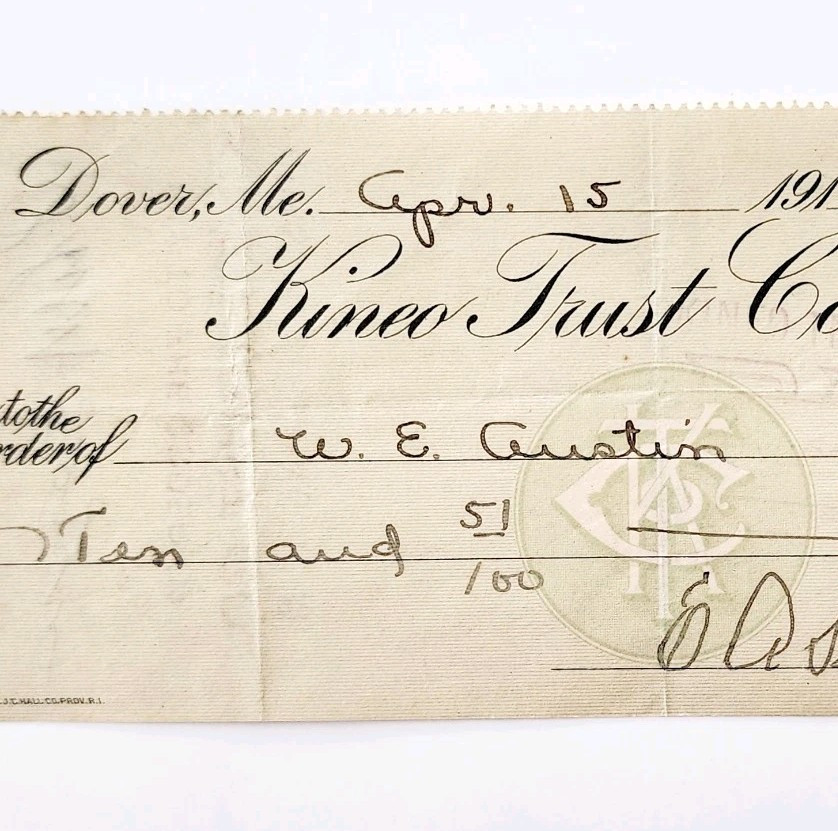 Dover, Me. Apr. 15 191
Kineo Trust Co
to the
rder of W. E. Austin
Ten and 51/100
E A
J.C. HALL CO. PROV. R.I.